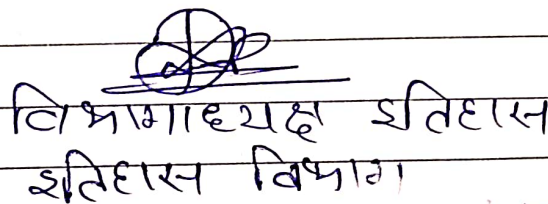 विभागाध्यक्ष इतिहास
इतिहास विभाग